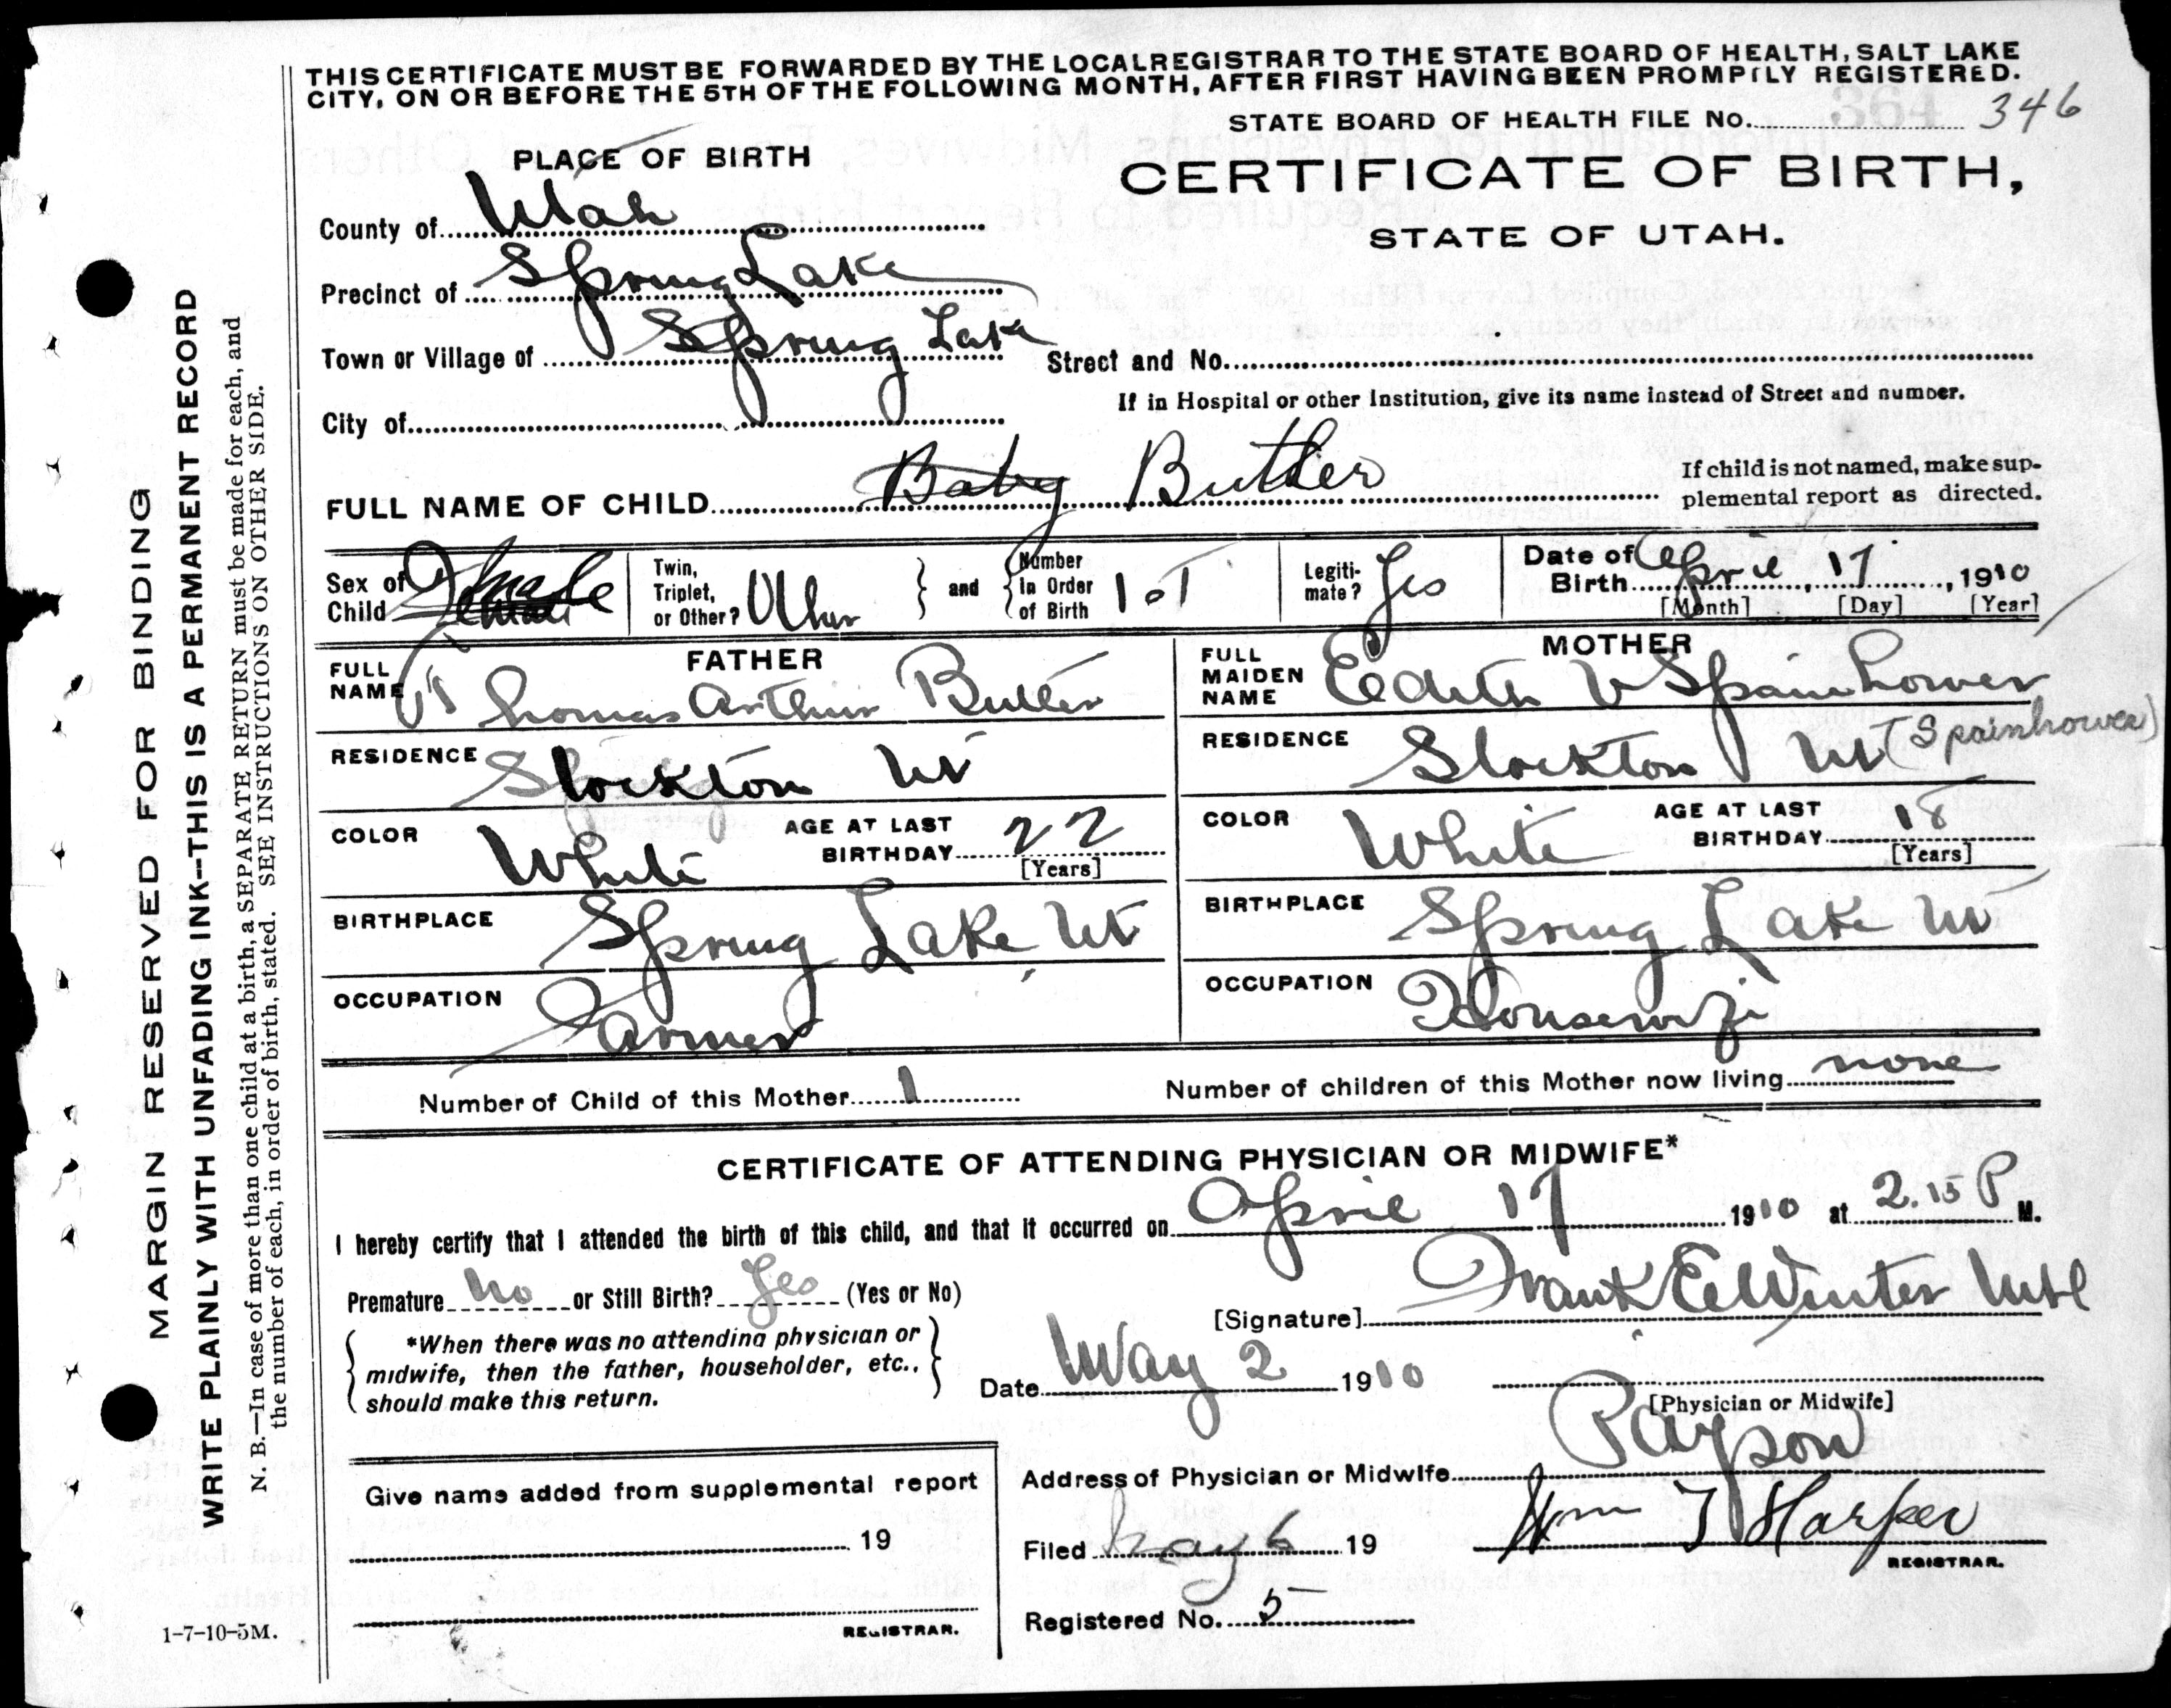 THIS CERTIFICATE MUST BE FORWARDED BY THE LOCAL REGISTRAR TO THE STATE BOARD OF HEALTH, SALT LAKE
CITY, ON OR BEFORE THE 5TH OF THE FOLLOWING MONTH, AFTER FIRST HAVING BEEN PROMPTLY REGISTERED.
STATE BOARD OF HEALTH FILE No. 364 346
PLACE OF BIRTH
CERTIFICATE OF BIRTH,
STATE OF UTAH.
County of Utah
Precinct of Spring Lake
Town or Village of Spring Lake
Street and No.
If in Hospital or other Institution, give its name instead of Street and number.
City of
FULL NAME OF CHILD Baby Butler
If child is not named, make sup-
plemental report as directed.
Sex of Child Female
Twin, Triplet, or Other? Other
and
Number In Order of Birth 1st
Legiti-mate? Yes
Date of Birth April 17, 1910
[Month] [Day] [Year]
FATHER
FULL NAME Thomas Arthur Butler
RESIDENCE Stockton Ut
COLOR White
AGE AT LAST BIRTHDAY 22
[Years]
BIRTHPLACE Spring Lake Ut
OCCUPATION Farmer
MOTHER
FULL MAIDEN NAME Eedith V Spainhower
(Spainhower)
RESIDENCE Stockton Ut
COLOR White
AGE AT LAST BIRTHDAY 18
[Years]
BIRTHPLACE Spring Lake Ut
OCCUPATION Housewife
Number of Child of this Mother 1
Number of children of this Mother now living none
CERTIFICATE OF ATTENDING PHYSICIAN OR MIDWIFE*
I hereby certify that I attended the birth of this child, and that it occurred on April 17 1910 at 2.15 P M.
Premature No or Still Birth? Yes (Yes or No)
[Signature] Frank E Winter
*When there was no attending physician or
midwife, then the father, householder, etc.,
should make this return.
Date May 2 1910
[Physician or Midwife]
Address of Physician or Midwife Payson
Give name added from supplemental report
19
REGISTRAR.
Filed May 6 19
Wm T Harper
REGISTRAR.
Registered No. 5
1-7-10-5M.
MARGIN RESERVED FOR BINDING
WRITE PLAINLY WITH UNFADING INK--THIS IS A PERMANENT RECORD
N. B.—In case of more than one child at a birth, a SEPARATE RETURN must be made for each, and
the number of each, in order of birth, stated. SEE INSTRUCTIONS ON OTHER SIDE.